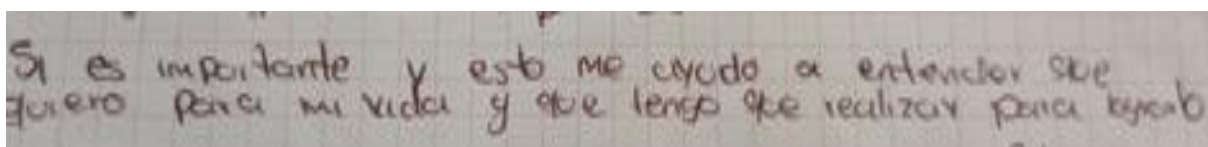 Si es importante y esto me ayudo a entender que
quiero para mi vida y que tengo que realizar para lograrlo